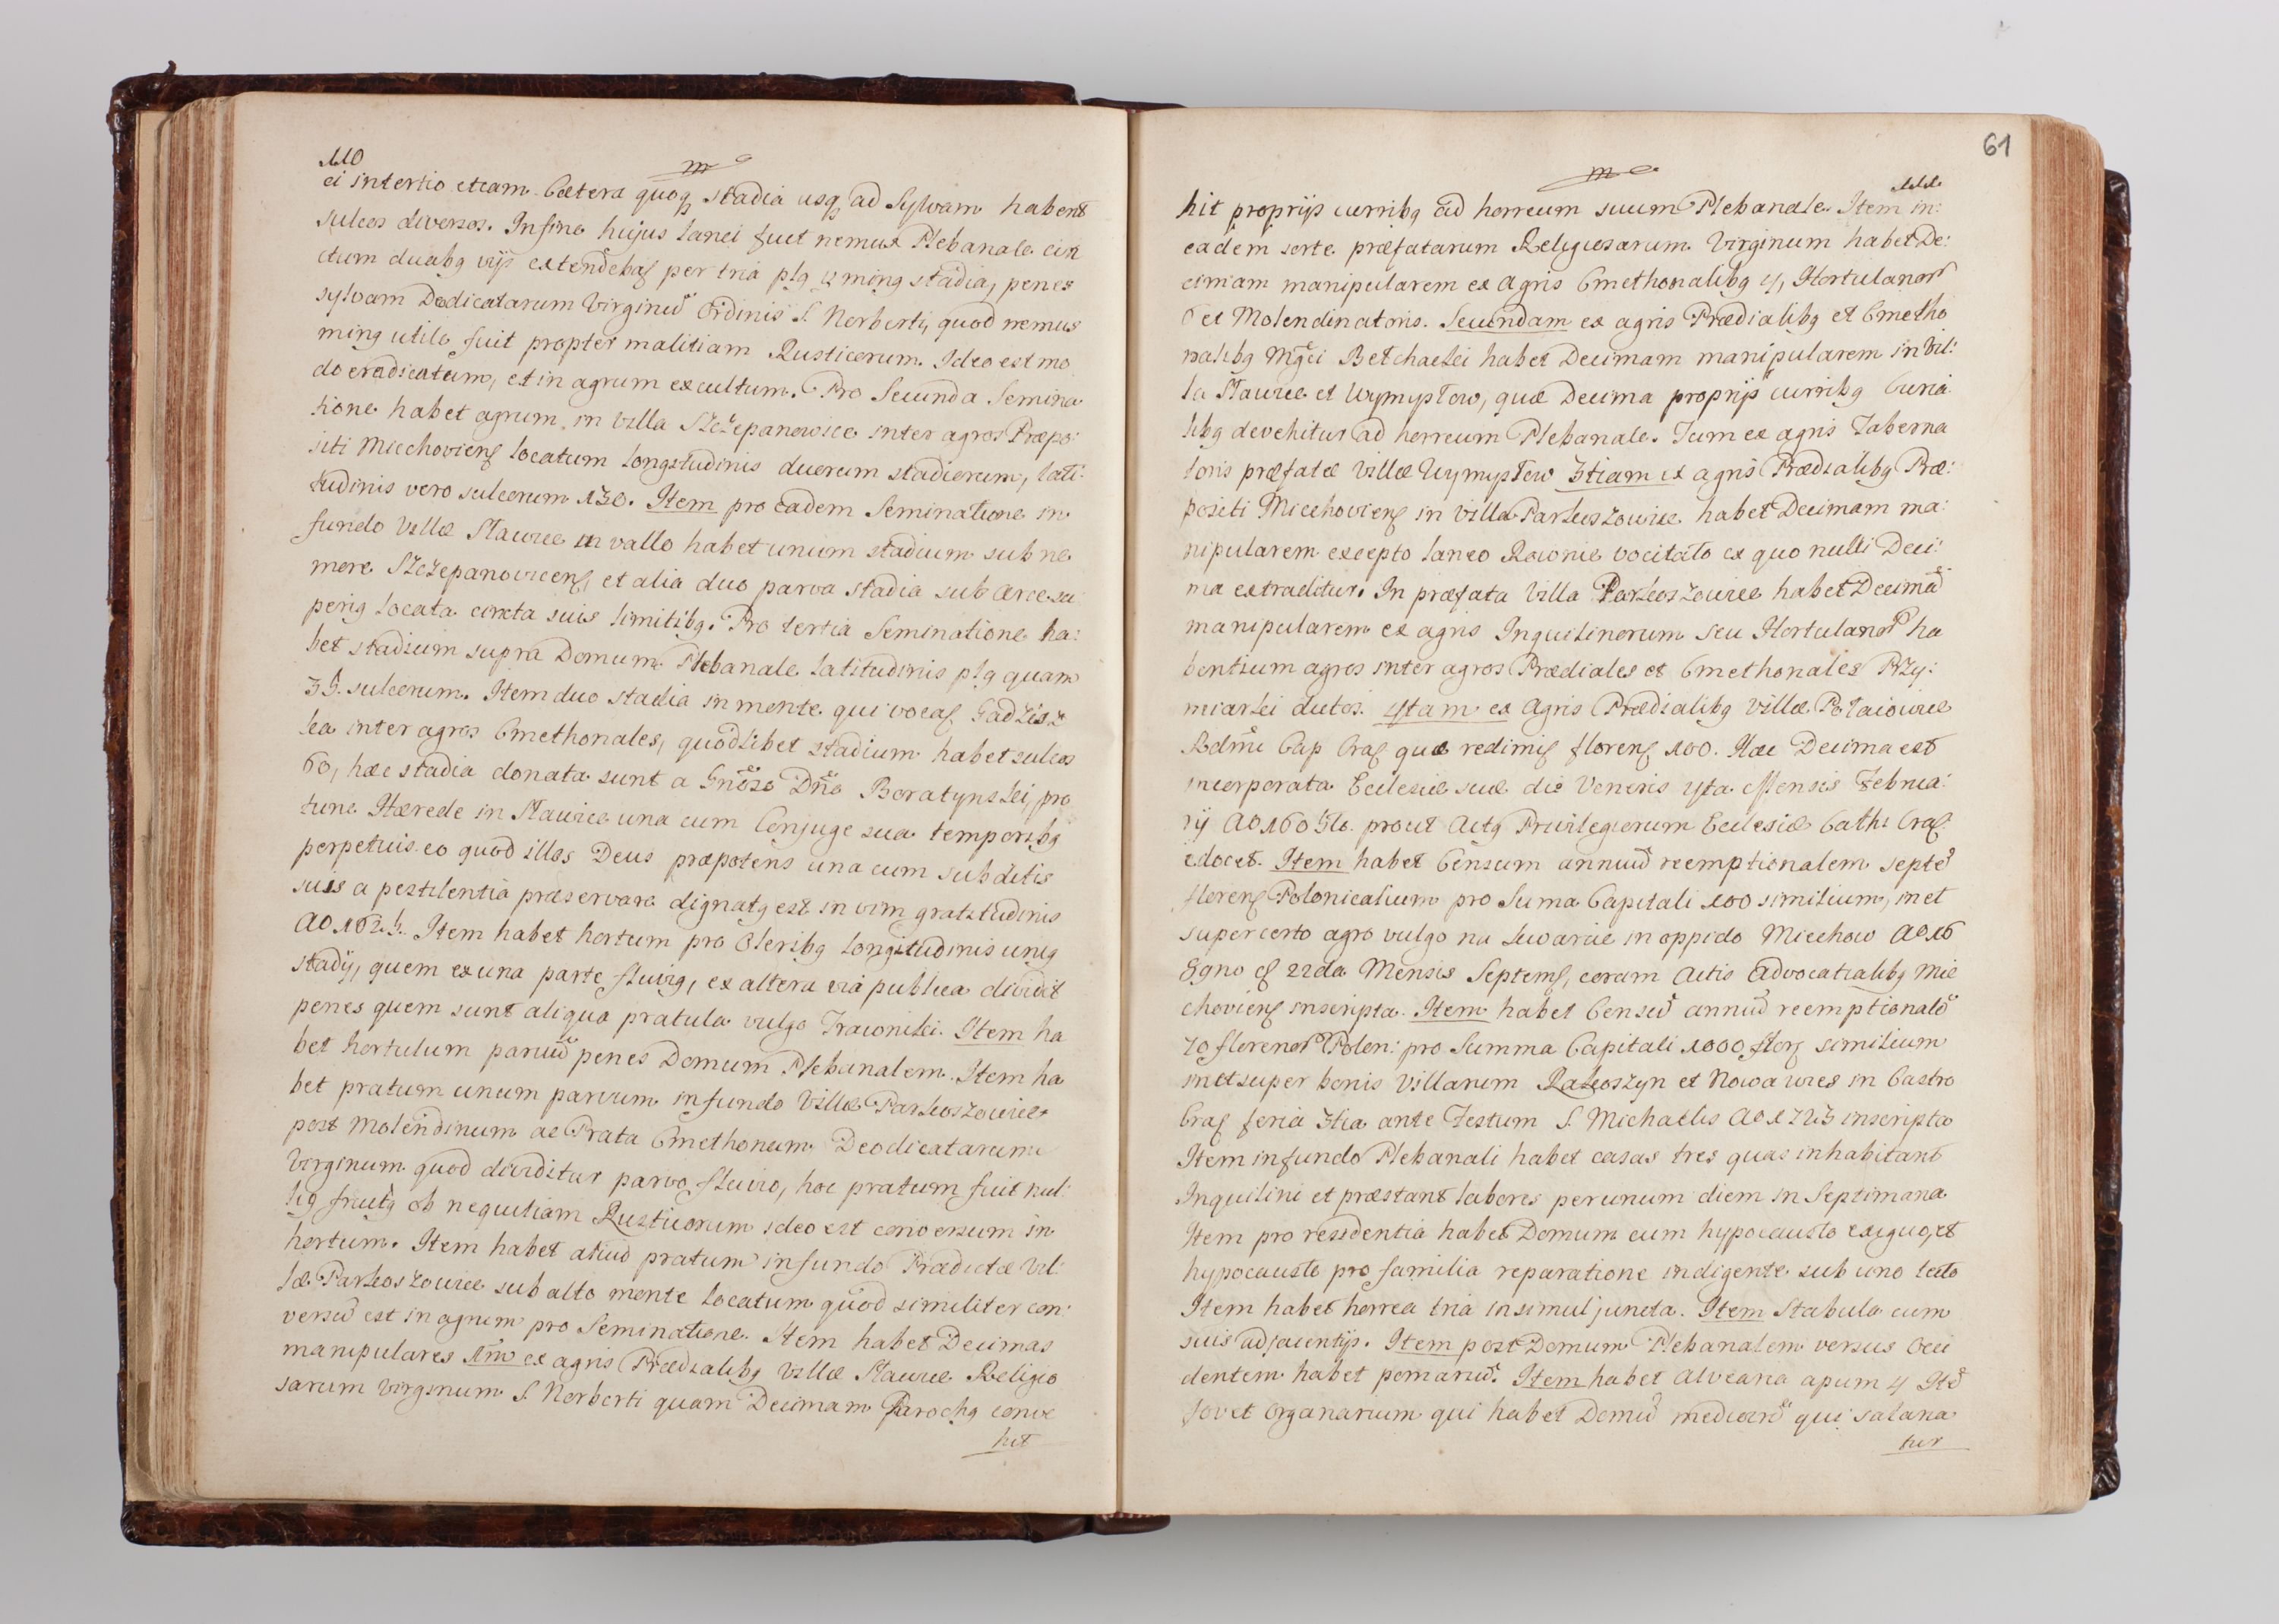 110
m
ei in tertio etiam. Cætera quoq stadia usq ad Sylvam habent
sulcos diversos. In fine hujus lanei fuit nemus Plebanale cin
ctum duabg vijs extendebaſ per tria plg ming stadia, penes
sylvam Deodicatarum Virginũ Ordinis S. Norberti, quod nemus
ming utile fuit propter malitiam Rusticorum. Ideo est mo
do eradicatum, et in agrum excultum. Pro Secunda Semina
tione habet agrum in Villa Szczepanowice inter agros Præpo:
siti Miechovienſ locatum longitudinis duorum stadiorum, lati:
tudinis vero sulcorum 130. Item pro eadem Seminatione in
fundo Villæ Sławice in vallo habet unum stadium sub ne
more Szczepanovicenſ, et alia duo parva stadia sub Arce su
perig locata cincta suis limitibg. Pro tertia Seminatione ha:
bet stadium supra Domum Plebanale latitudinis plg quam
35. sulcorum. Item duo stadia in monte qui vocaſ Gadzisz
ka inter agros Cmethonales, quodlibet stadium habet sulcos
60, hæc stadia donata sunt a Gnõso Dño Boratynski, pro
tunc Hærede in Sławice una cum Conjuge sua temporibg
perpetuis eo quod illos Deus præpotens una cum subditis
suis a pestilentia præservare dignatg est in vim gratitudinis
Ao 1625. Item habet hortum pro Oleribg longitudinis unig
stadij, quem ex una parte fluvig, ex altera via publica dividit
penes quem sunt aliqua pratula vulgo Trawniki. Item ha
bet hortulum parvũ penes Domum Plebanalem. Item ha
bet pratum unum parvum in fundo Villæ Parkoszowice
post Molendinum ac Prata Cmethonum Deodicatarum
Virginum quod dividitur parvo fluvio, hoc pratum fuit nul:
lig fructg ob nequitiam Rusticorum ideo est conversum in
hortum. Item habet aliud pratum in fundo Prædictæ Vil:
læ Parkoszowice sub alto monte locatum quod similiter con:
versũ est in agrum pro Seminatione. Item habet Decimas
manipulares 1mo ex agris Prædialibg Villæ Sławice Religio
sarum Virginum S. Norberti quam Decimam Parochg conve
hit
61
m
111
hit proprijs curribg ad horreum suum Plebanale. Item in:
eadem sorte præfatarum Religiosarum Virginum habet De:
cimam manipularem ex agris Cmethonalibg 4, Hortulanor
6 et Molendinatoris. Secundam ex agris Prædialibg et Cmetho
nalibg Mgci Betchacki habet Decimam manipularem in Vil:
la Sławice et Wymysłow, quæ Decima proprijs curribg Curia
libg devehitur ad horreum Plebanale. Tum ex agris Taberna
toris præfatæ Villæ Wymysłow 3tiam ex agris Prædialibg Præ:
positi Miechovienſ in Villa Parkoszowice habet Decimam ma:
nipularem excepto laneo Rownie vocitato ex quo nulli Deci:
ma extraditur. In præfata Villa Parkoszowice habet Decimã
manipularem ex agris Inquilinorum seu Hortulanor ha
bentium agros inter agros Prædiales et Cmethonales Przy:
miarki dictos. 4tam ex Agris Prædialibg Villæ Pstaiowice
Rdmi Cap Craſ quæ redimiſ florenſ 100. Hæc Decima est
incorporata Ecclesiæ suæ die Veneris 4ta Mensis Februa:
rij Ao 1605to. prout Actg Privilegiorum Ecclesiæ Cath: Craſ:
edocet. Item habet Censum annuũ reemptionalem septẽ
florenſ Polonicalium pro Suma Capitali 100 similium, in et
super certo agro vulgo na Lwarcie in oppido Miechow Ao 16
89no et 22da Mensis Septemſ, coram Actis Advocatialibg Mie
chovienſ inscripta. Item habet Censũ annuũ reemptionalẽ
70 florenor Polon: pro Summa Capitali 1000 florſ similium
in et super bonis Villarum Rakoszyn et Nowawies in Castro
Craſ feria 3tia ante Festum S. Michaelis Ao 1723 inscripta
Item in fundo Plebanali habet casas tres quas inhabitant
Inquilini et præstant labores per unum diem in Septimana
Item pro residentia habet Domum cum hypocausto exiguo, et
hypocausto pro familia reparatione indigente sub uno tecto
Item habet horrea tria insimul juncta. Item Stabula cum
suis adjacentijs. Item post Domum Plebanalem versus Occi
dentem habet pomariũ. Item habet Alvearia apum 4 Itẽ
fovet Organarium qui habet Domũ mediocrẽ qui salaria
tur